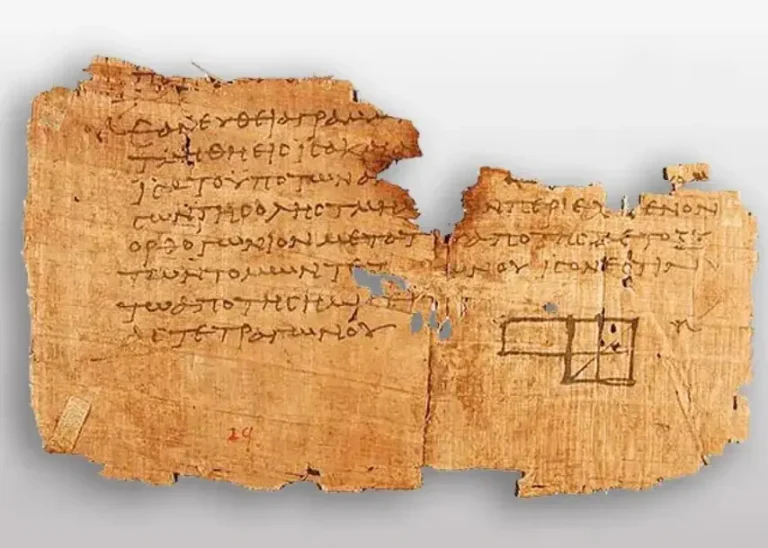 ΕΑΝΕΥΘΕΙΑΓΡΑΜ
ΤΜΗΘΗΕΙϹΙϹΑΚΑΙΑ
ΙϹΑΤΟΥΠΟΤΩΝΑ
ϹΩΝΤΗϹΟΛΗϹΤΜΗ Ν ΠΕΡΙΕΧ ΜΕΝΟΝ
ΟΡΘΟΓΩΝΙΟΝΜΕΤΟΤ ΑΠΟΤΗϹΜΕΤΟΞΥ
ΤΩΝΤΟΜΩΝΤΕΤ ΩΝΟΥΙϹΟΝΕϹΤΙΝ
ΤΩΑΠΟΤΗϹΗΜΙϹ
ΑϹΤΕΤΡΑΓΩΝΟΥ
29